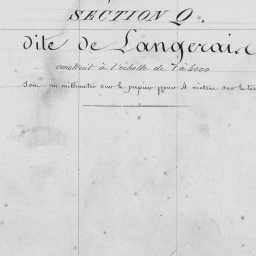 SECTION Q.
dite de Langerais
construit à l'échelle de 1 à
soit un millimètre sur le papier pour 4 mètres sur le